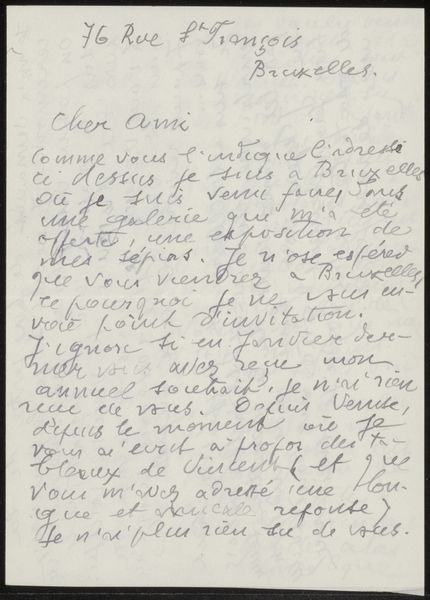 76 Rue St François
Bruxelles.
Cher Ami
Comme vous l'indique l'adresse
ci dessus je suis à Bruxelles
où je suis venu faire, dans
une galerie que m'a été
offerte, une exposition de
mes sépias. Je n'ose espérer
que vous viendrez à Bruxelles,
ce pourquoi je ne vous en-
voie point d'invitation.
J'ignore si en Janvier der-
nier vous avez reçu mon
annuel souhait, je n'ai rien
reçu de vous. Depuis Venise,
depuis le moment où je
vous ai écrit à propos des ta-
bleaux de Vincent, et que
vous m'avez adressé une lon-
gue et amicale réponse,
Je n'ai plus rien su de vous.